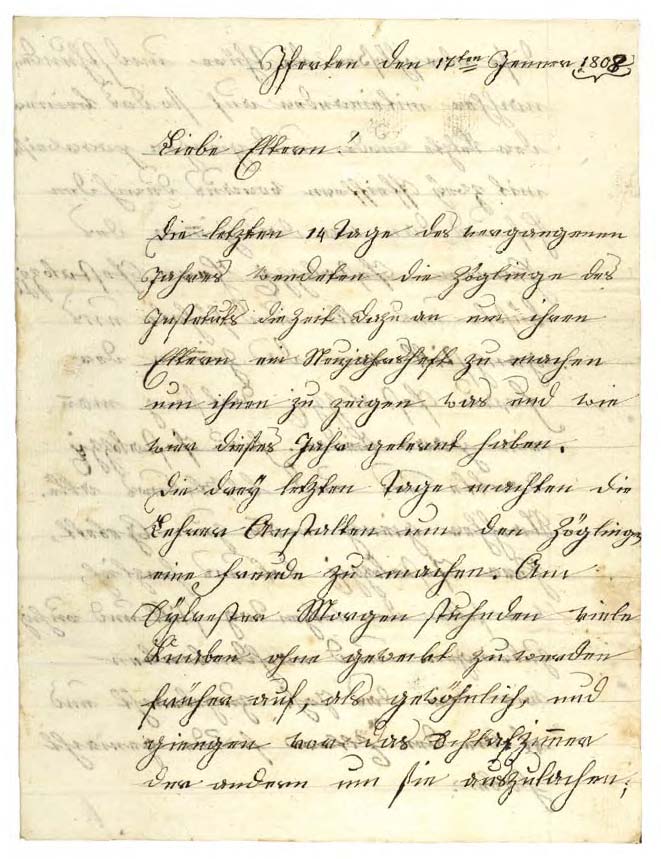 Iferten den 17ten Jenner 1808
Liebe Eltern!
Die letzten 14 Tage des vergangenen
Jahres wendeten die Zöglinge des
Instituts die Zeit dazu an um ihren
Eltern ein Neujahrsheft zu machen
um ihnen zu zeigen was und wie
wir dieses Jahr gelernt haben.
Die drey letzten Tage machten die
Lehrer Anstalten um den Zöglingen
eine Freude zu machen. Am
Sylvester Morgen stuhnden viele
Knaben ohne geweckt zu werden
früher auf, als gewöhnlich, und
giengen vor das Schlafzimer
der andern um sie auszulachen;